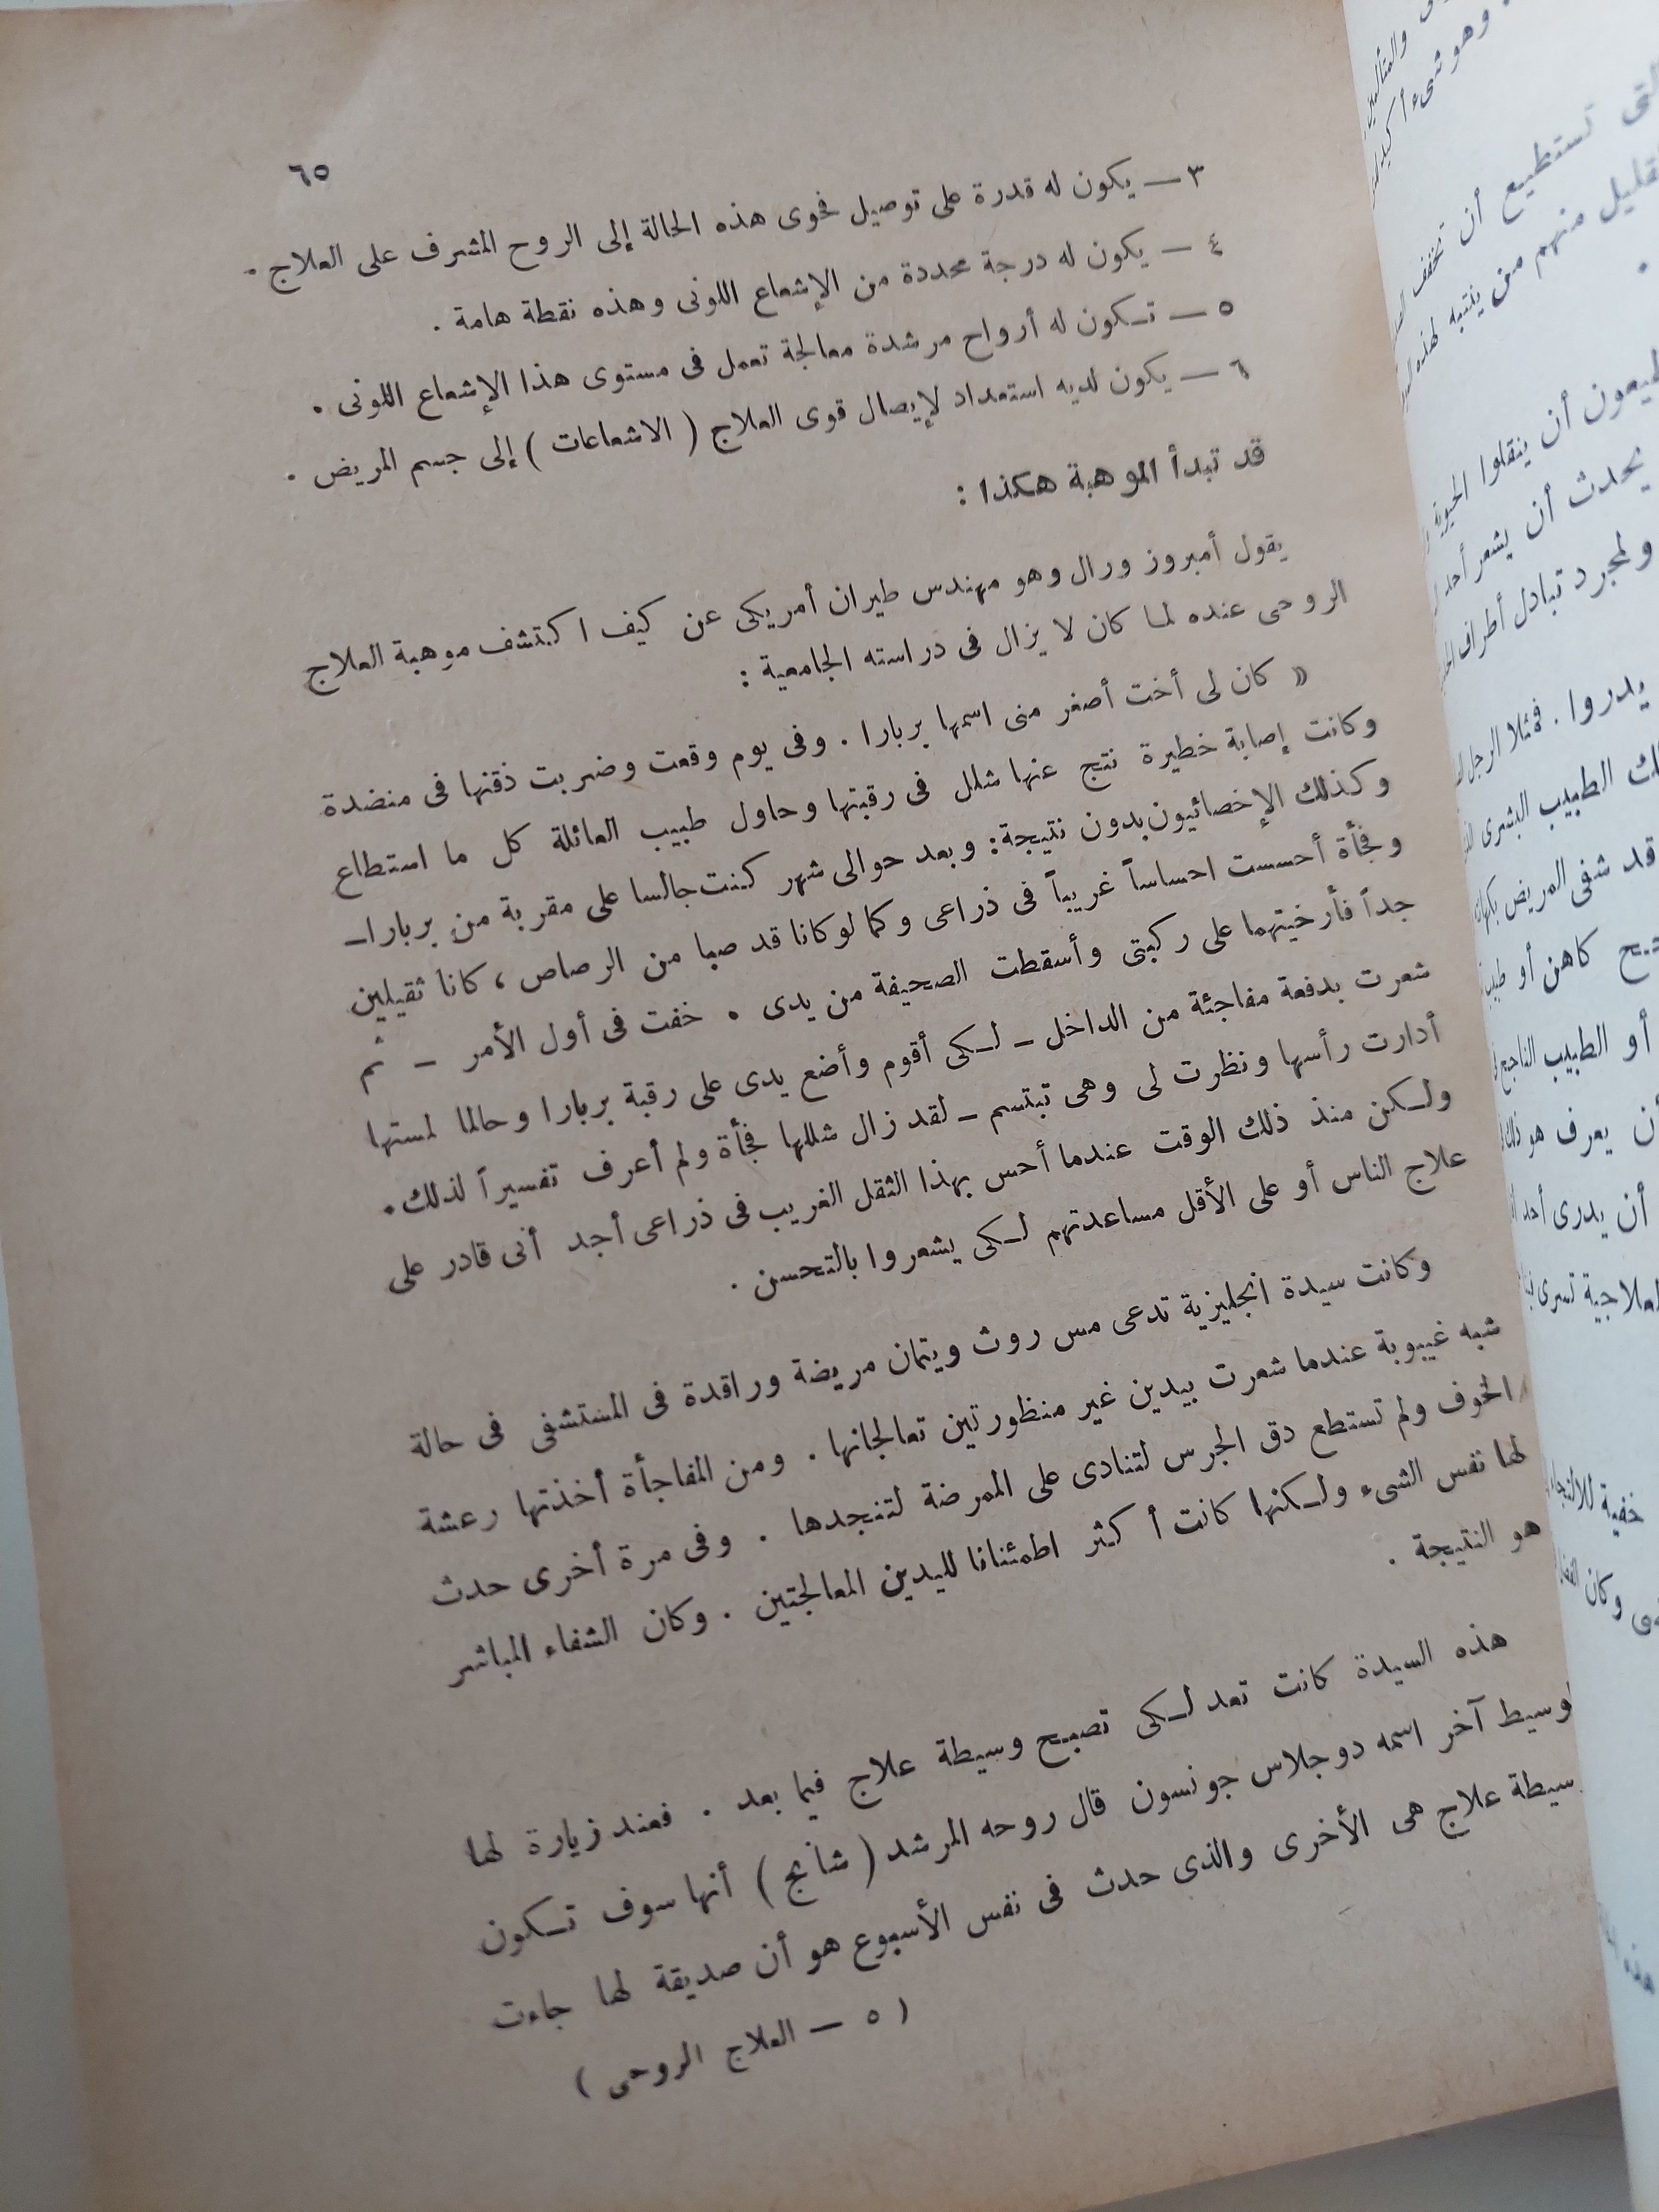 ٦٥
٣ — يكون له قدرة على توصيل فحوى هذه الحالة إلى الروح المشرف على العلاج .
٤ — يكون له درجة محددة من الإشعاع اللونى وهذه نقطة هامة .
٥ — تـكون له أرواح مرشدة معالجة تعمل فى مستوى هذا الإشعاع اللونى .
٦ — يكون لديه استعداد لإيصال قوى العلاج ( الاشعاعات ) إلى جسم المريض .
قد تبدأ الموهبة هكذا :
يقول أمبروز ورال وهو مهندس طيران أمريكى عن كيف اكتشف موهبة العلاج
الروحى عنده لما كان لا يزال فى دراسته الجامعية :
« كان لى أخت أصغر منى اسمها بربارا . وفى يوم وقعت وضربت ذقنها فى منضدة
وكانت إصابة خطيرة نتج عنها شلل فى رقبتها وحاول طبيب العائلة كل ما استطاع
وكذلك الإخصائيون بدون نتيجة : وبعد حوالى شهر كنت جالسا على مقربة من بربارا ــ
وفجأة أحسست احساساً غريباً فى ذراعى وكما لو كانا قد صبا من الرصاص ، كانا ثقيلين
جداً فأرخيتهما على ركبتى وأسقطت الصحيفة من يدى . خفت فى أول الأمر – ثم
شعرت بدفعة مفاجئة من الداخل – لـكى أقوم وأضع يدى على رقبة بربارا وحالما لمستها
أدارت رأسها ونظرت لى وهى تبتسم – لقد زال شللها فجأة ولم أعرف تفسيراً لذلك .
ولـكن منذ ذلك الوقت عندما أحس بهذا الثقل الغريب فى ذراعى أجد أنى قادر على
علاج الناس أو على الأقل مساعدتهم لـكى يشعروا بالتحسن .
وكانت سيدة انجليزية تدعى مس روث ويتمان مريضة وراقدة فى المستشفى فى حالة
شبه غيبوبة عندما شعرت بيدين غير منظورتين تعالجانها . ومن المفاجأة أخذتها رعشة
الخوف ولم تستطع دق الجرس لتنادى على الممرضة لتنجدها . وفى مرة أخرى حدث
لها نفس الشىء ولـكنها كانت أكثر اطمئنانا لليدين المعالجتين . وكان الشفاء المباشر
هو النتيجة .
هذه السيدة كانت تعد لـكى تصبح وسيطة علاج فيما بعد . فعند زيارة لها
لوسيط آخر اسمه دوجلاس جونسون قال روحه المرشد ( شانج ) أنها سوف تـكون
وسيطة علاج هى الأخرى والذى حدث فى نفس الأسبوع هو أن صديقة لها جاءت
( ٥ — العلاج الروحى )
والمتألمين
وهو شىء
تستطيع أن تخفف
قليل منهم من ينتبه لهذه
أن ينقلوا الحيوية
يحدث أن يشعر أحد
ولمجرد تبادل أطراف
يدروا . فمثلا الرجل
الطبيب البشرى
قد شفى المريض
كاهن أو
أو الطبيب الناجح
يعرف هو ذلك
أن يدرى أحد
تسرى
خفية
وكان
هذه